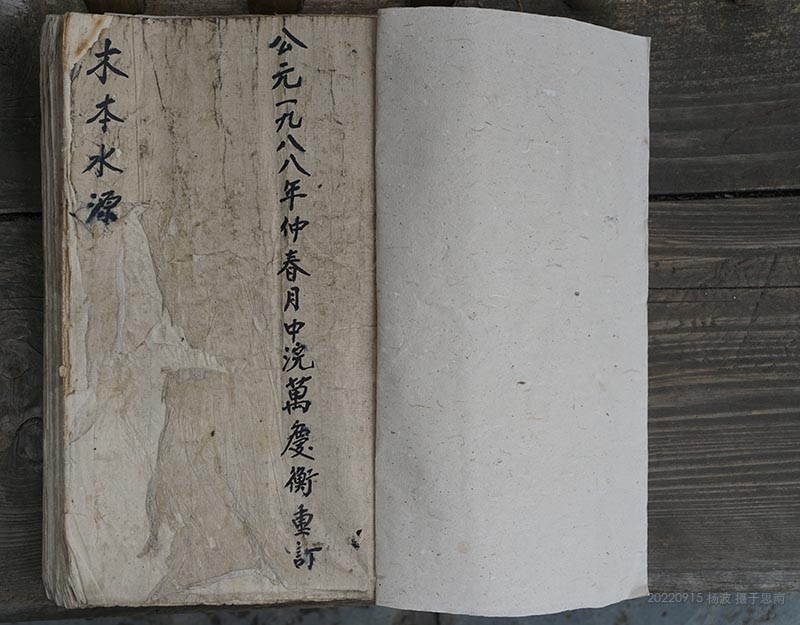 公元一九八八年仲春月中浣萬慶衡重訂
木本水源
20220915 杨波 摄于思南